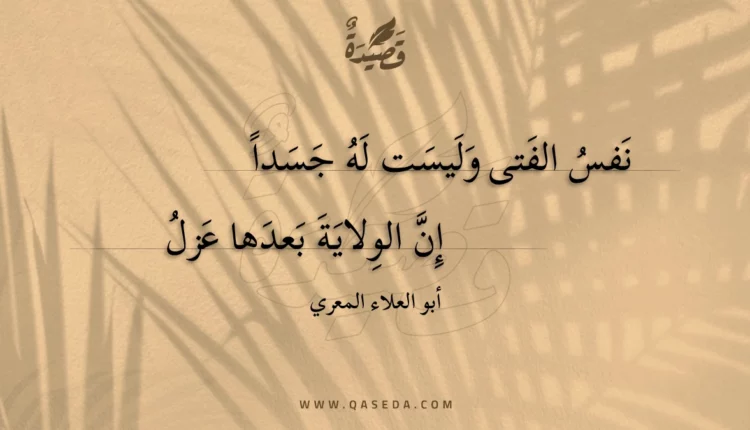 قَصِيْدَةٌ
نَفسُ الفَتى وَلَيسَت لَهُ جَسَداً
إِنَّ الوِلايَةَ بَعدَها عَزلُ
أبو العلاء المعري
WWW.QASEDA.COM